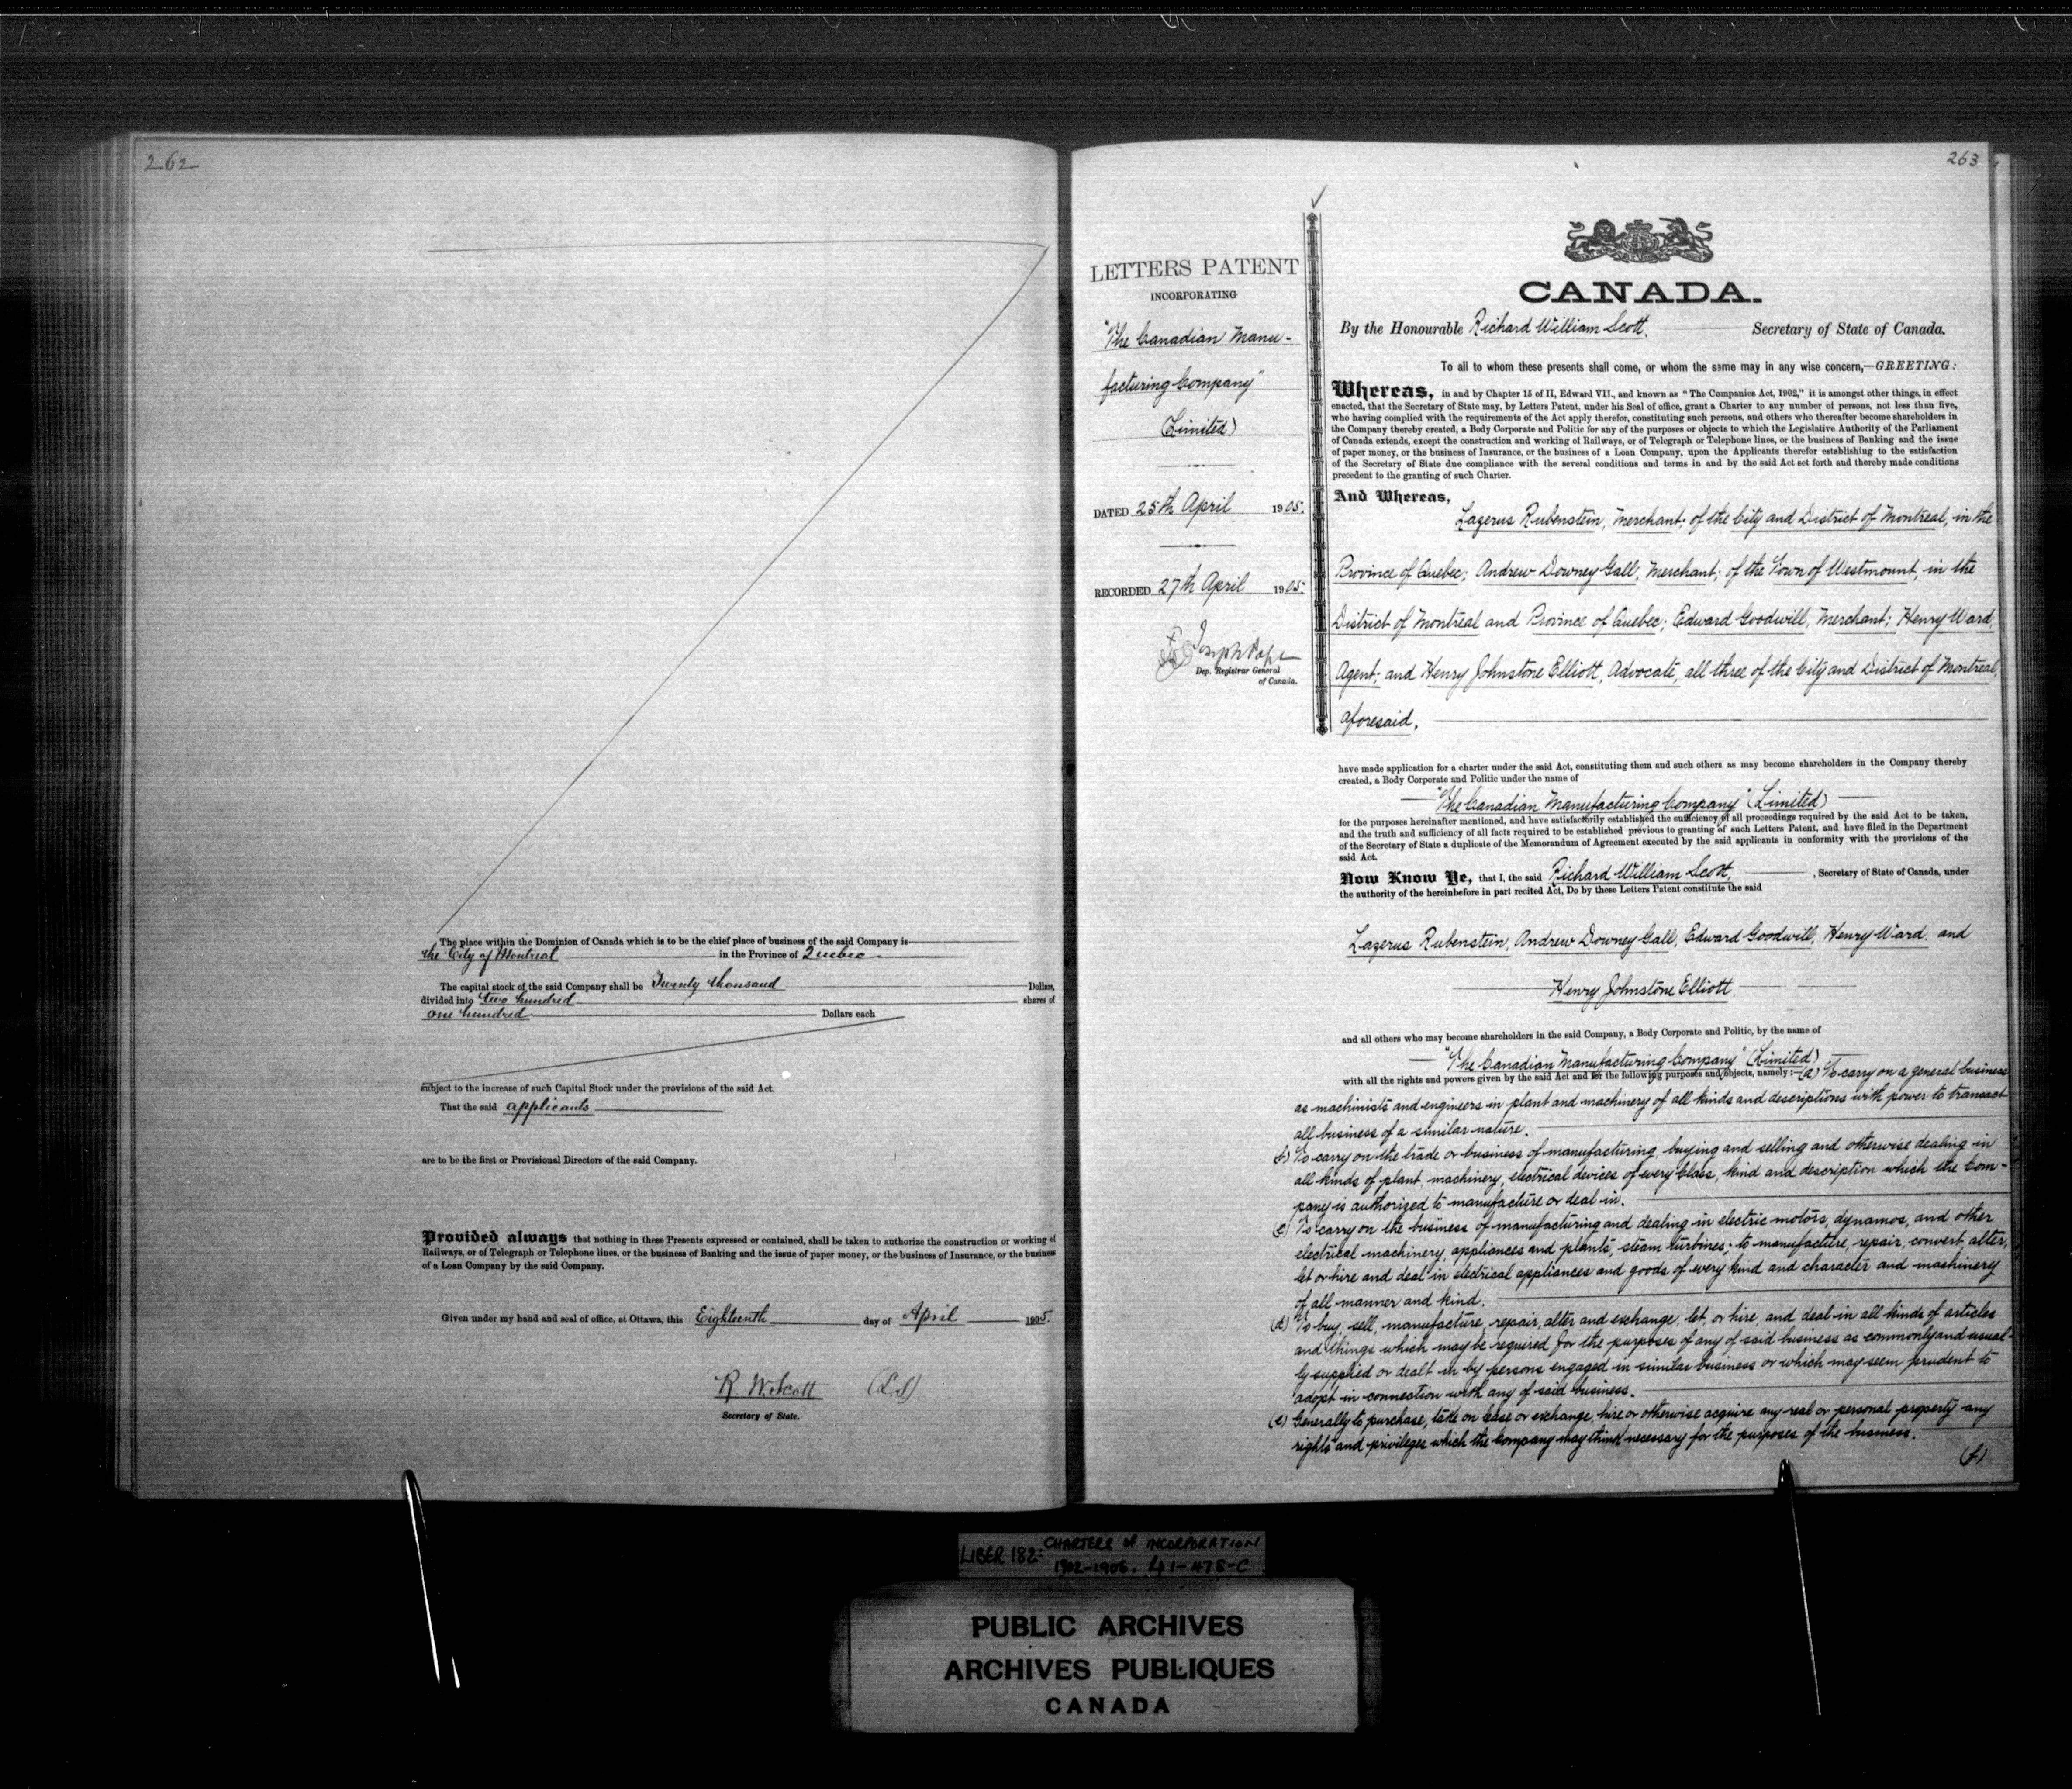 262
The place within the Dominion of Canada which is to be the chief place of business of the said Company is
the City of Montreal in the Province of Quebec
The capital stock of the said Company shall be Twenty thousand Dollars,
divided into two hundred shares of
one hundred Dollars each
subject to the increase of such Capital Stock under the provisions of the said Act.
That the said applicants
are to be the first or Provisional Directors of the said Company.
Provided always that nothing in these Presents expressed or contained, shall be taken to authorize the construction or working of
Railways, or of Telegraph or Telephone lines, or the business of Banking and the issue of paper money, or the business of Insurance, or the business
of a Loan Company by the said Company.
Given under my hand and seal of office, at Ottawa, this Eighteenth day of April 1905.
R. W. Scott (L.S)
Secretary of State.
263
LETTERS PATENT
INCORPORATING
"The Canadian Manu-
facturing Company"
(Limited)
DATED 25th April 1905.
RECORDED 27th April 1905.
Joseph Pope
Dep. Registrar General
of Canada.
CANADA.
By the Honourable Richard William Scott, Secretary of State of Canada.
To all to whom these presents shall come, or whom the same may in any wise concern,—GREETING:
Whereas, in and by Chapter 15 of II, Edward VII., and known as "The Companies Act, 1902," it is amongst other things, in effect
enacted, that the Secretary of State may, by Letters Patent, under his Seal of office, grant a Charter to any number of persons, not less than five,
who having complied with the requirements of the Act apply therefor, constituting such persons, and others who thereafter become shareholders in
the Company thereby created, a Body Corporate and Politic for any of the purposes or objects to which the Legislative Authority of the Parliament
of Canada extends, except the construction and working of Railways, or of Telegraph or Telephone lines, or the business of Banking and the issue
of paper money, or the business of Insurance, or the business of a Loan Company, upon the Applicants therefor establishing to the satisfaction
of the Secretary of State due compliance with the several conditions and terms in and by the said Act set forth and thereby made conditions
precedent to the granting of such Charter.
And Whereas,
Lazerus Rubenstein, Merchant; of the City and District of Montreal, in the
Province of Quebec; Andrew Downey Gall, Merchant; of the Town of Westmount, in the
District of Montreal and Province of Quebec; Edward Goodwill, Merchant; Henry Ward,
Agent; and Henry Johnstone Elliott, Advocate, all three of the City and District of Montreal,
aforesaid,
have made application for a charter under the said Act, constituting them and such others as may become shareholders in the Company thereby
created, a Body Corporate and Politic under the name of
"The Canadian Manufacturing Company" (Limited)
for the purposes hereinafter mentioned, and have satisfactorily established the sufficiency of all proceedings required by the said Act to be taken,
and the truth and sufficiency of all facts required to be established previous to granting of such Letters Patent, and have filed in the Department
of the Secretary of State a duplicate of the Memorandum of Agreement executed by the said applicants in conformity with the provisions of the
said Act.
Now Know Ye, that I, the said Richard William Scott, , Secretary of State of Canada, under
the authority of the hereinbefore in part recited Act, Do by these Letters Patent constitute the said
Lazerus Rubenstein, Andrew Downey Gall, Edward Goodwill, Henry Ward, and
Henry Johnstone Elliott.
and all others who may become shareholders in the said Company, a Body Corporate and Politic, by the name of
"The Canadian Manufacturing Company" (Limited)
with all the rights and powers given by the said Act and for the following purposes and objects, namely:—(a) To carry on a general business
as machinists and engineers in plant and machinery of all kinds and descriptions with power to transact
all business of a similar nature.
(b) To carry on the trade or business of manufacturing, buying and selling and otherwise dealing in
all kinds of plant, machinery, electrical devices of every Class, kind and description which the Com-
pany is authorized to manufacture or deal in.
(c) To carry on the business of manufacturing and dealing in electric motors, dynamos, and other
electrical machinery, appliances and plants, steam turbines; to manufacture, repair, convert alter,
let or hire and deal in electrical appliances and goods of every kind and character and machinery
of all manner and kind.
(d) To buy, sell, manufacture, repair, alter and exchange, let, or hire, and deal in all kinds of articles
and things which may be required for the purposes of any of said business as commonly and usual-
ly supplied or dealt in by persons engaged in similar business or which may seem prudent to
adopt in connection with any of said business.
(e) Generally to purchase, take on lease or exchange, hire or otherwise acquire any real or personal property any
rights and privileges which the Company may think necessary for the purposes of the business.
(f)
LIBER 182: CHARTERS of INCORPORATION
1902-1906. 1-478-C
PUBLIC ARCHIVES
ARCHIVES PUBLIQUES
CANADA